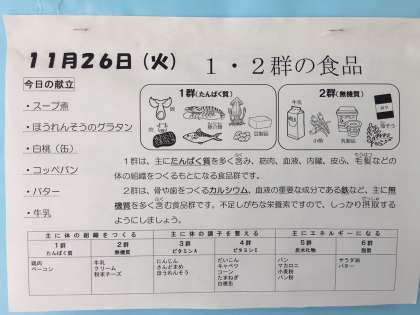 11月26日（火） 1・2群の食品
今日の献立
・スープ煮
・ほうれんそうのグラタン
・白桃（缶）
・コッペパン
・バター
・牛乳
1群（たんぱく質）
2群（無機質）
牛乳
小魚
乳製品
豆製品
1群は、主にたんぱく質を多く含み、筋肉、血液、内臓、皮ふ、毛髪などの
体の組織をつくるもとになる食品群です。
2群は、骨や歯をつくるカルシウム、血液の重要な成分である鉄など、主に無
機質を多く含む食品群です。不足しがちな栄養素ですので、しっかり摂取する
ようにしましょう。
主に体の組織をつくる 主に体の調子を整える 主にエネルギーになる
1群 2群 3群 4群 5群 6群
たんぱく質 無機質 ビタミンA ビタミンC 炭水化物 脂肪
鶏肉 牛乳 にんじん だいこん パン サラダ油
ベーコン クリーム さんどまめ キャベツ マカロニ バター
粉末チーズ ほうれんそう コーン 小麦粉
たまねぎ パン粉
白桃缶